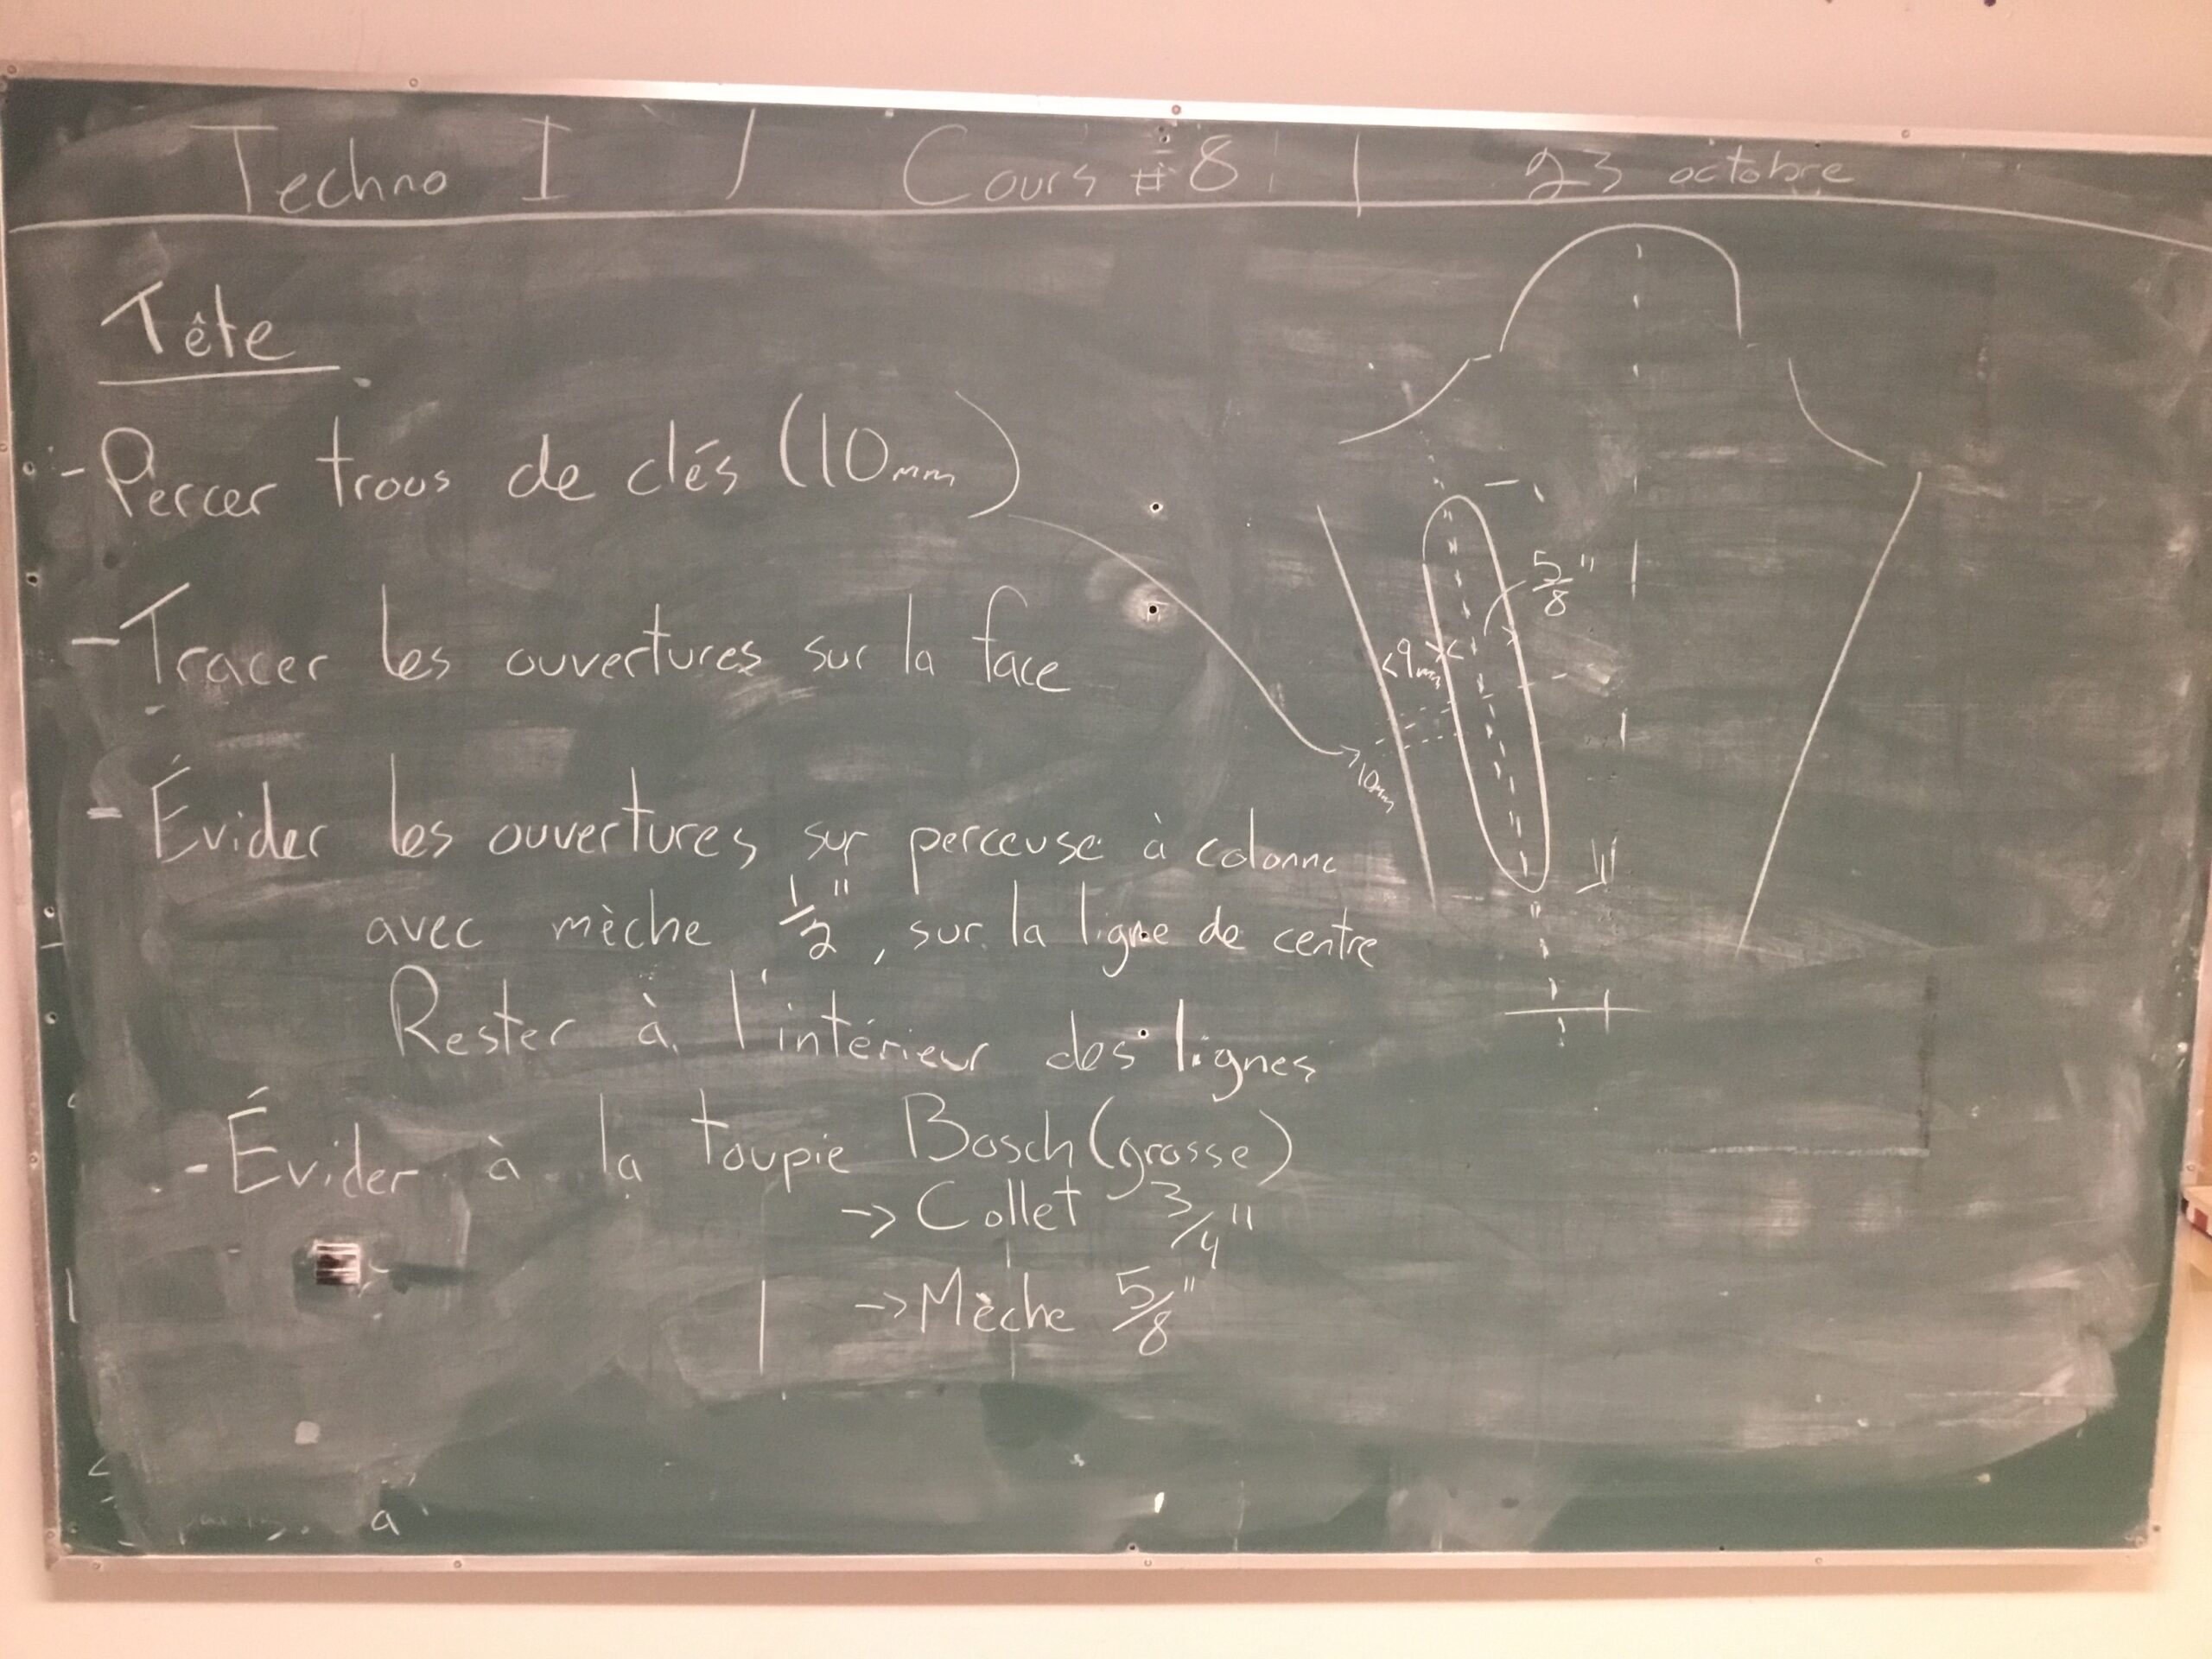 Techno I / Cours #8 | 23 octobre
Tête
- Percer trous de clés (10mm)
- Tracer les ouvertures sur la face
- Évider les ouvertures sur perceuse à colonne
avec mèche 1/2", sur la ligne de centre
Rester à l'intérieur des lignes
- Évider à la toupie Bosch (grosse)
-> Collet 3/4"
-> Mèche 5/8"
5/8"
<9mm
10mm